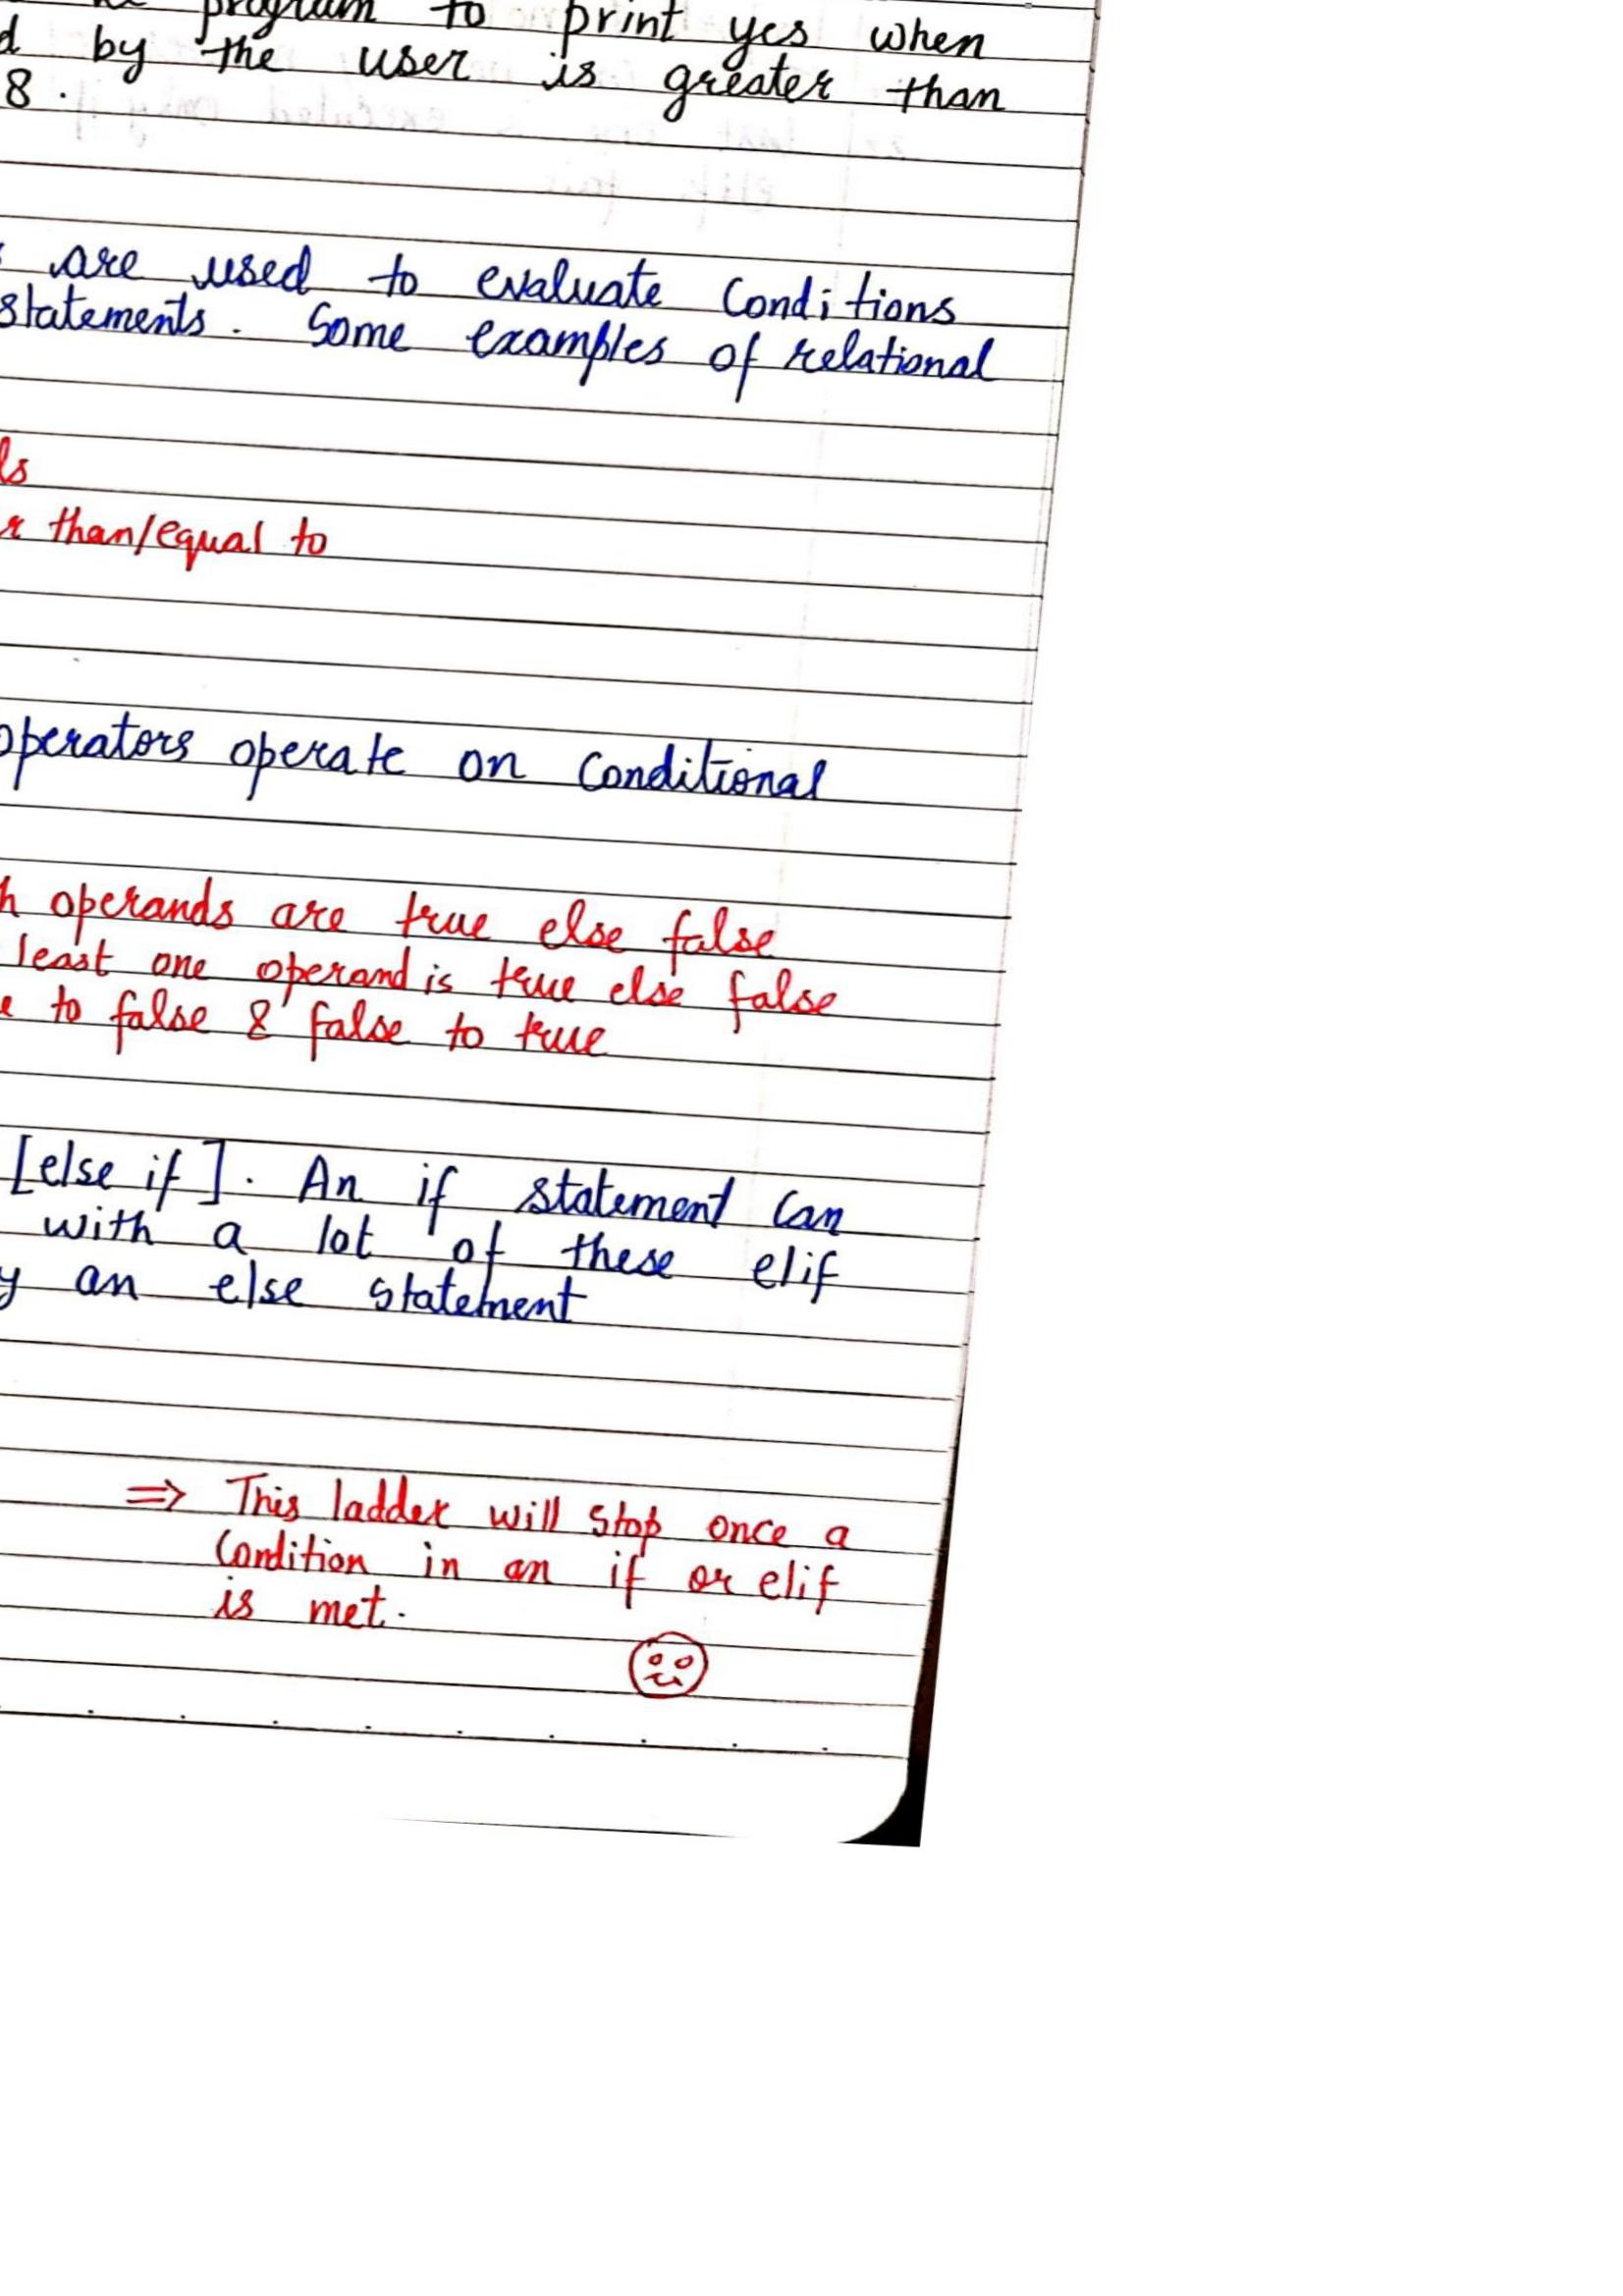 program to print yes when
by the user is greater than
8.
are used to evaluate Conditions
statements. Some examples of relational
than/equal to
operators operate on Conditional
operands are true else false
least one operand is true else false
to false & false to true
[else if]. An if statement can
with a lot of these elif
an else statement
⇒ This ladder will stop once a
Condition in an if or elif
is met.